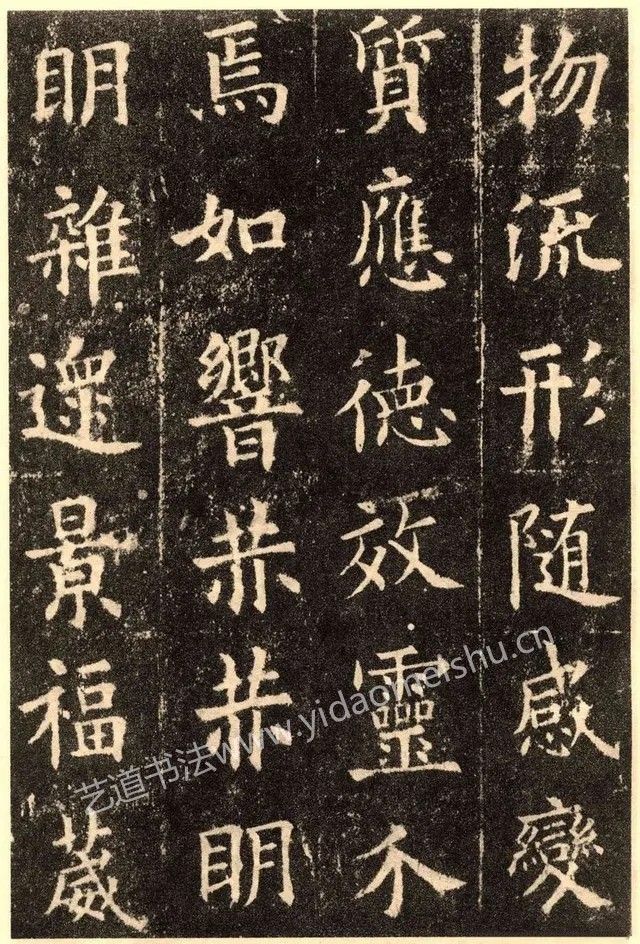 物流形随感變
質應德效靈不
焉如響赫赫明
明雜遝景福葳
艺道书法www.yidaomeishu.cn